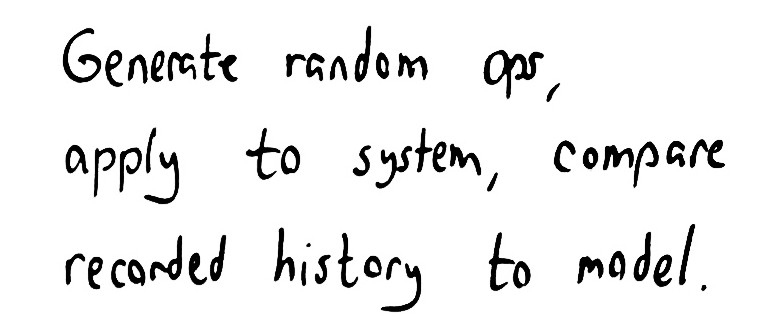 Generate random ops,
apply to system, compare
recorded history to model.